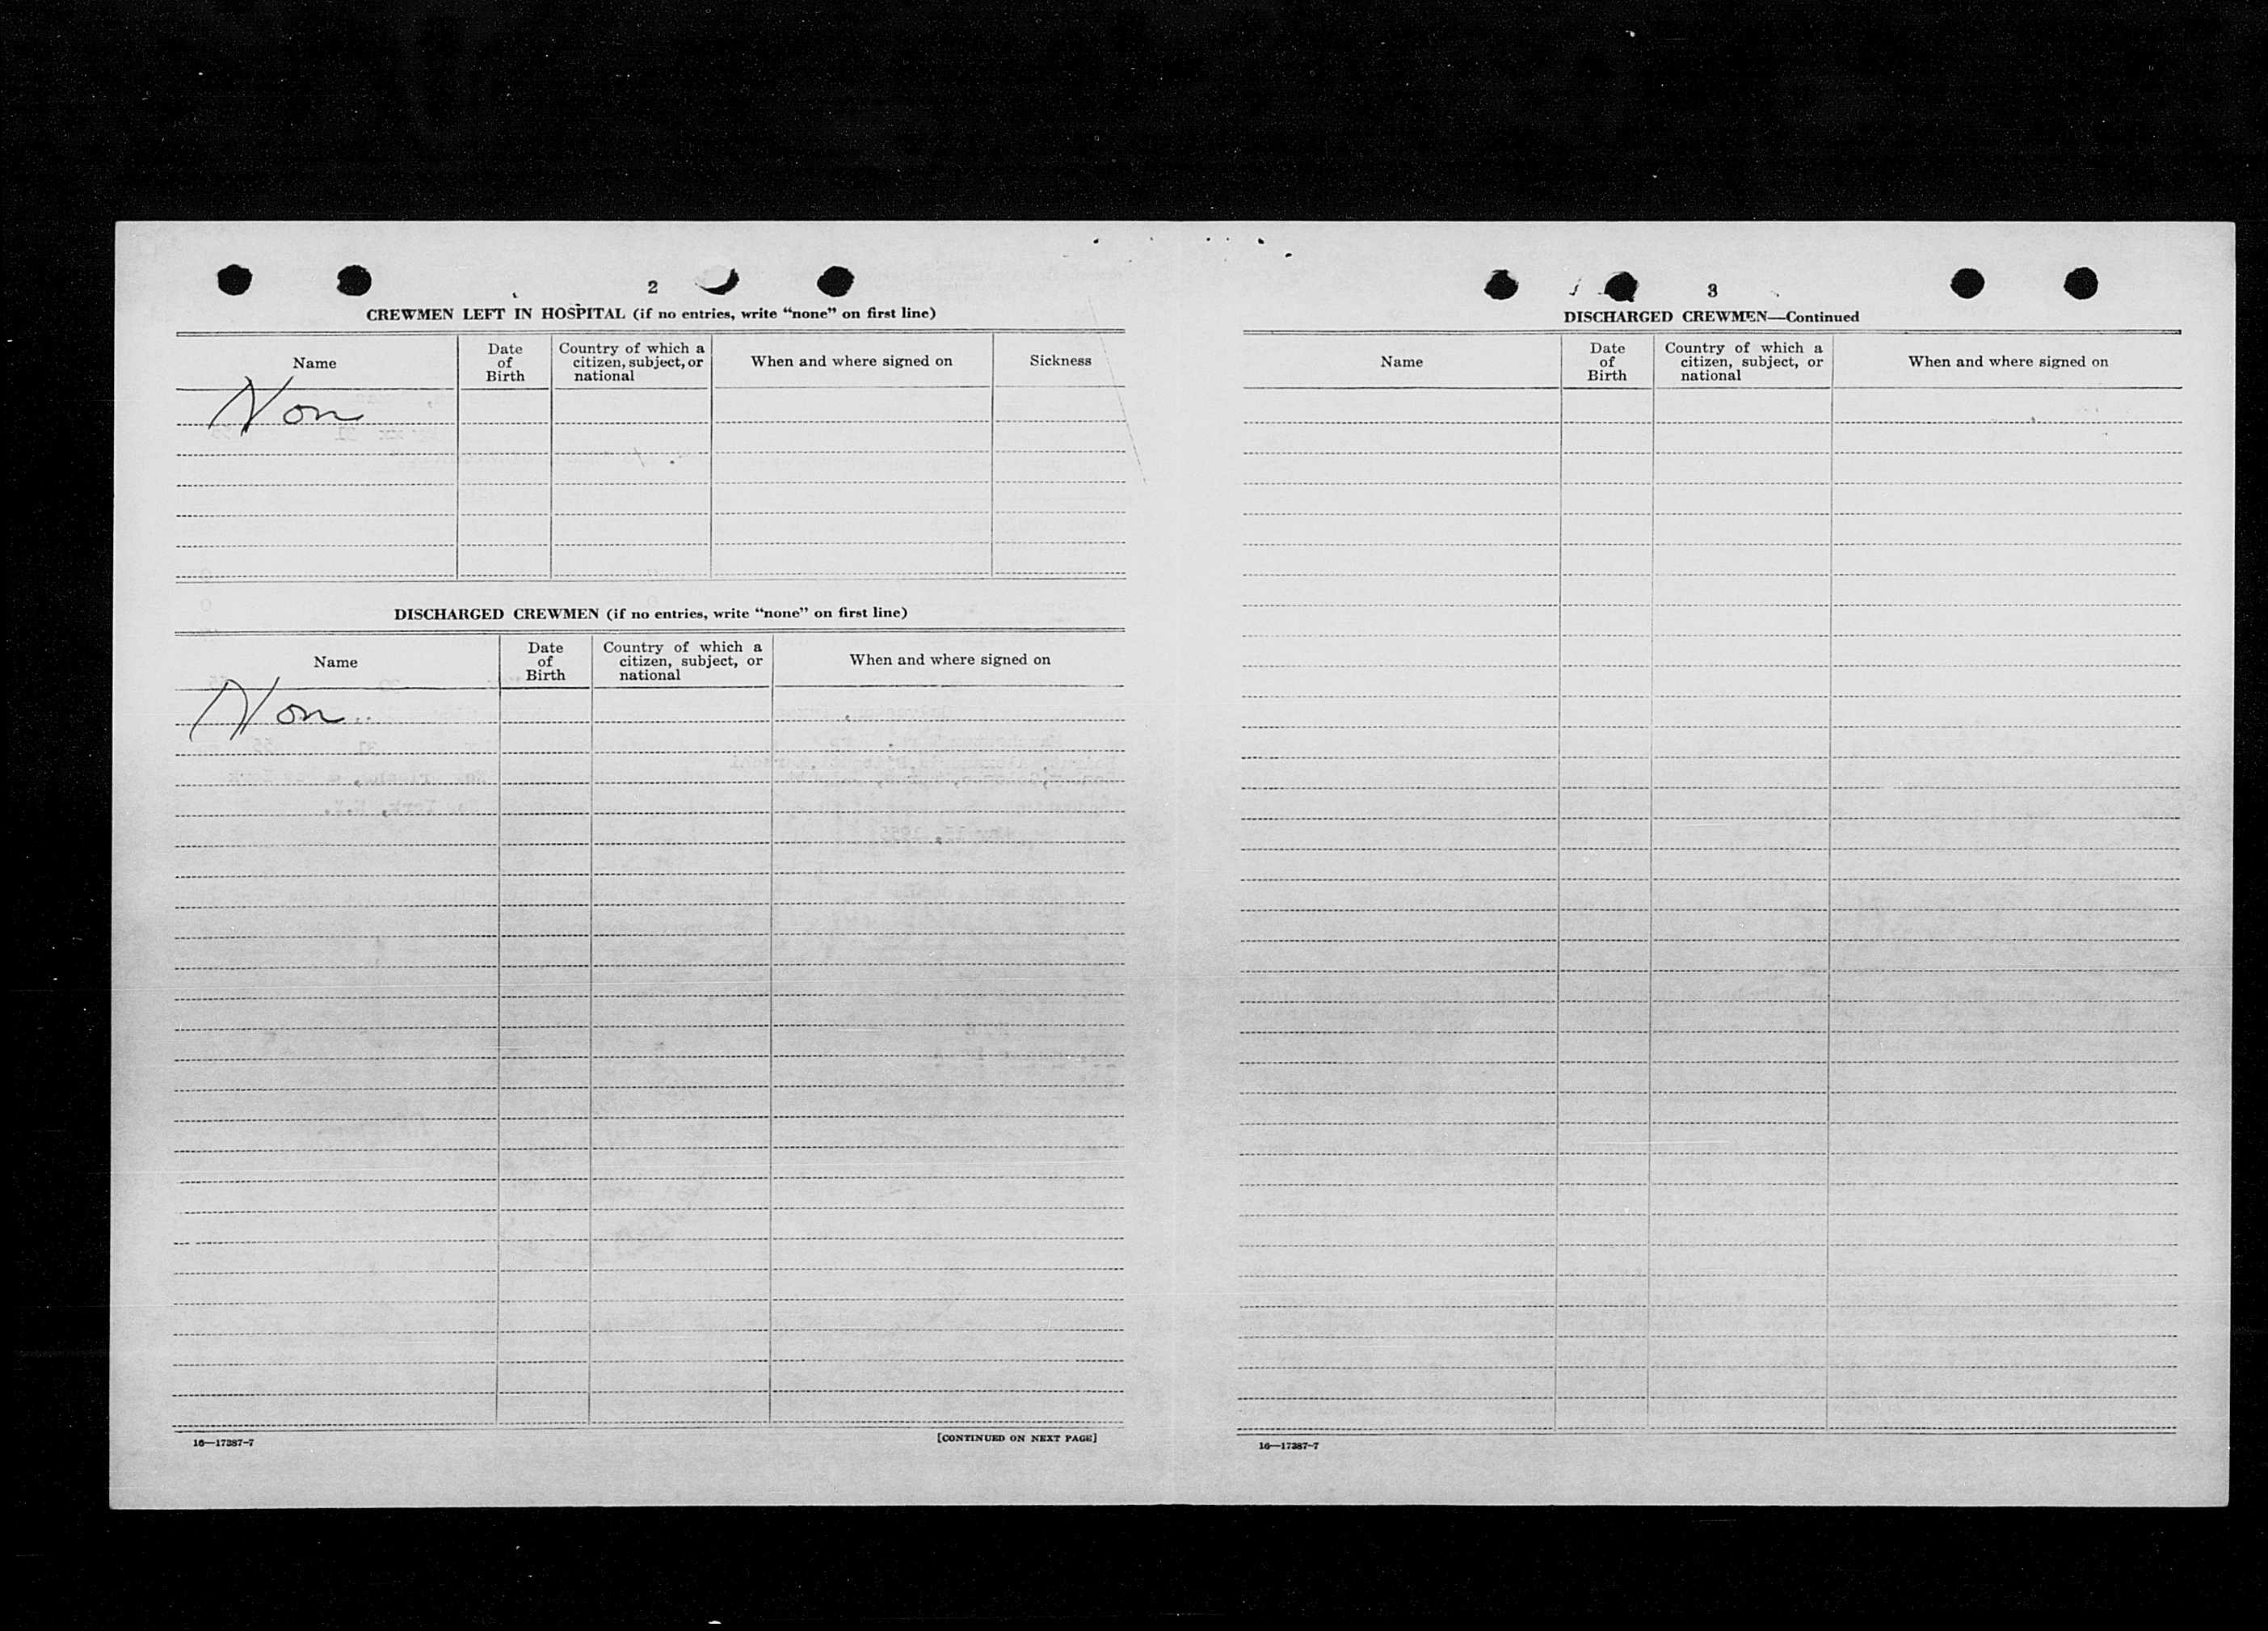 2
CREWMEN LEFT IN HOSPITAL (if no entries, write "none" on first line)
Name
Date of Birth
Country of which a citizen, subject, or national
When and where signed on
Sickness
Non
DISCHARGED CREWMEN (if no entries, write "none" on first line)
Name
Date of Birth
Country of which a citizen, subject, or national
When and where signed on
Non
16—17387-7
[CONTINUED ON NEXT PAGE]
3
DISCHARGED CREWMEN—Continued
Name
Date of Birth
Country of which a citizen, subject, or national
When and where signed on
16—17387-7